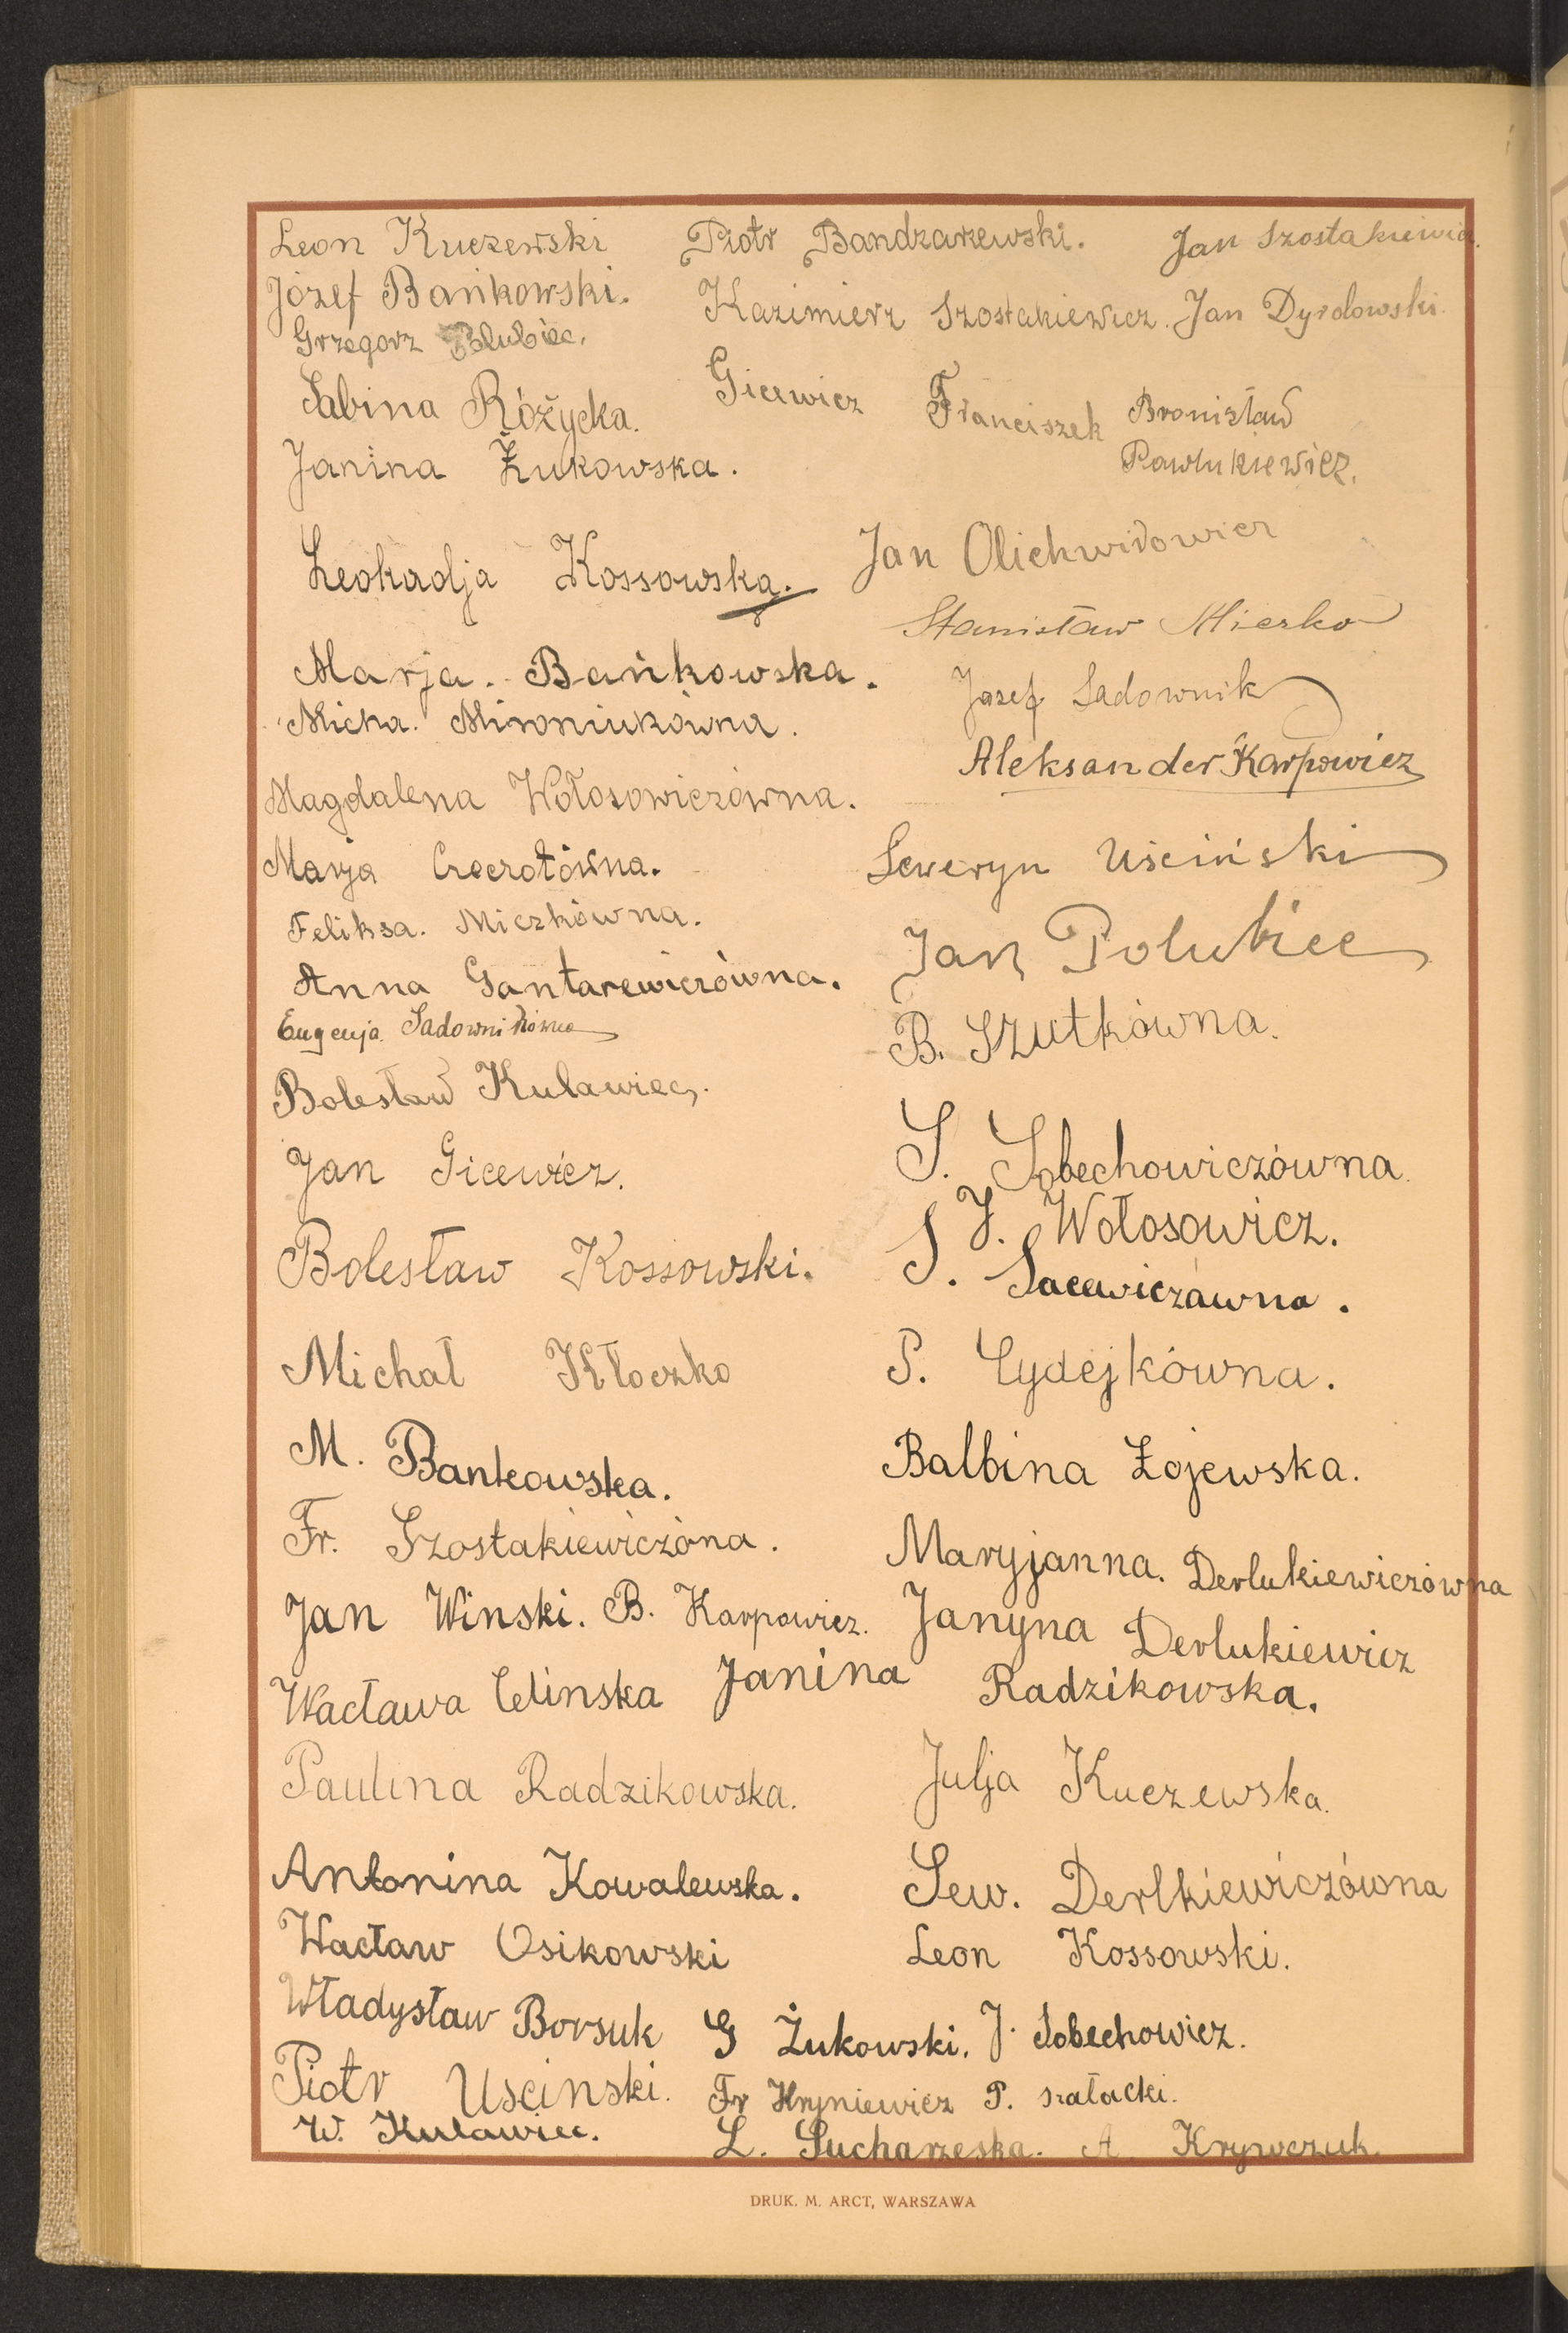 Leon Kuczewski Piotr Bandzarzewski. Jan Szostakiewicz.
Józef Bańkowski. Kazimierz Szostakiewicz. Jan Dyrdowski.
Grzegorz Polubiec.
Sabina Różycka. Gicewicz Franciszek Bronisław
Janina Żukowska. Pawlukiewicz.
Leokadja Kossowska. Jan Olichwirowicz
Stanisław Miezko
Marja. Bańkowska. Jozef Sadownik
Micha. Mironiukówna.
Aleksander Karpowicz
Magdalena Wołosowiczówna.
Marja Czeczotówna. Seweryn Uściński
Feliksa. Miczkówna.
Jan Polubiec
Anna Gantarewiczówna.
Eugenja. Sadownikówna B. Szutkówna.
Bolesław Kulawiec.
Jan Gicewicz. S. Sobechowiczówna.
J. Wołosowicz.
Bolesław Kossowski. S. Sacewiczawna.
Michał Kłoczko P. Cydejkówna.
M. Bankowska. Balbina Łojewska.
Fr. Szostakiewiczóna. Maryjanna. Derlukiewiczówna
Jan Winski. B. Karpowicz. Janyna Derlukiewicz
Wacława Celinska Janina Radzikowska.
Paulina Radzikowska. Julja Kuczewska.
Antonina Kowalewska. Sew. Derlkiewiczówna
Wacław Osikowski Leon Kossowski.
Władysław Borsuk G Żukowski. J. Sobechowicz.
Piotr Uscinski. Fr Hryniewicz P. szałacki.
W. Kulawiec. L. Sucharzeska. A. Krywczuk.
DRUK. M. ARCT, WARSZAWA